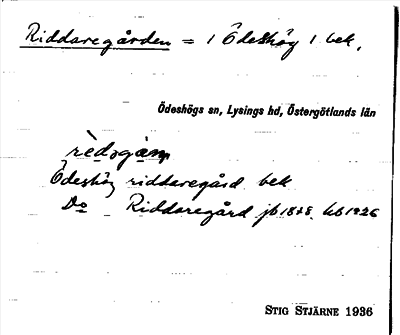 Riddaregården = 1 Ödeshög 1 bek.
Ödeshögs sn, Lysings hd, Östergötlands län
Ödeshög riddaregård bek
Do Riddaregård jb 1878 kb 1926
STIG STJÄRNE 1936